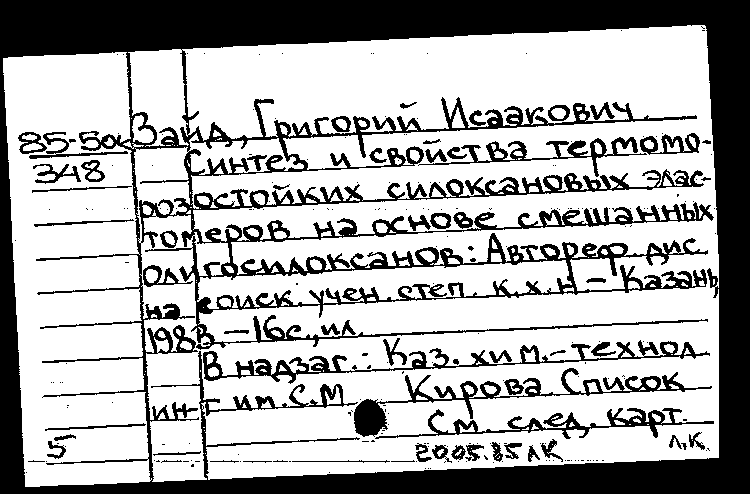 85-50к Зайд, Григорий Исаакович.
348 Синтез и свойства термомо-
розостойких силоксановых элас-
томеров на основе смешанных
олигосилоксанов: Автореф. дис.
на соиск. учен. степ. к.х.н – Казань,
1983. – 16с., ил.
В надзаг.: Каз. хим.-технол
ин-т им. С.М Кирова. Список
См. след. карт.
5 20.05.85 ЛК Л.К.